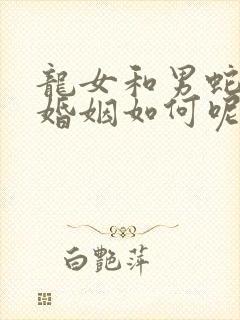 龍女和男蛇
婚姻如何呢
白艷萍